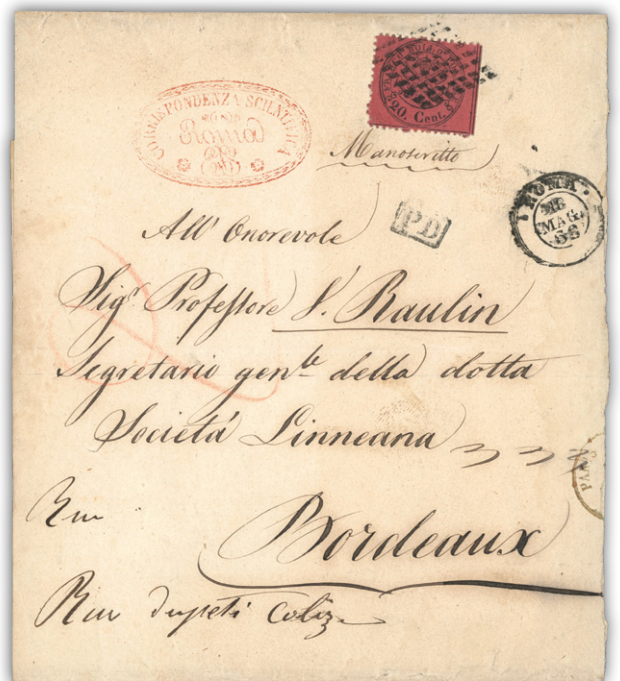 CORRISPONDENZA SCIENTIFICA
Roma
20. Cent.
Manoscritto
ROMA
MAG.
P.D
All' Onorevole
Sigr Professore V. Raulin
Segretario genle della dotta
Società Linneana
Bordeaux
Rue
Rue